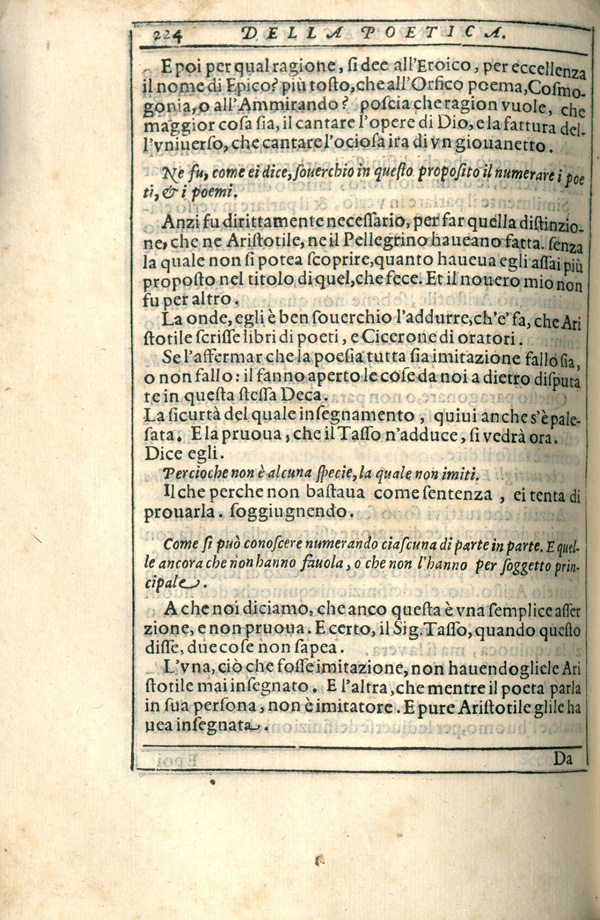 224 DELLA POETICA.
E poi per qual ragione, si dee all'Eroico, per eccellenza
il nome di Epico? più tosto, che all'Orfico poema, Cosmo-
gonia, o all'Ammirando? poscia che ragion vuole, che
maggior cosa sia, il cantare l'opere di Dio, e la fattura del-
l'vniuerso, che cantare l'ociosa ira di vn giouanetto.
Ne fu, come ei dice, souerchio in questo proposito il numerare i poe
ti, & i poemi.
Anzi fu dirittamente necessario, per far quella distinzio-
ne, che ne Aristotile, ne il Pellegrino haueano fatta. senza
la quale non si potea scoprire, quanto haueua egli assai più
proposto nel titolo di quel, che fece. Et il nouero mio non
fu per altro.
La onde, egli è ben souerchio l'addurre, ch'e' fa, che Ari
stotile scrisse libri di poeti, e Cicerone di oratori.
Se l'affermar che la poesia tutta sia imitazione fallo sia,
o non fallo: il fanno aperto le cose da noi a dietro disputa
te in questa stessa Deca.
La sicurtà del quale insegnamento, quiui anche s'è pale-
sata. E la pruoua, che il Tasso n'adduce, si vedrà ora.
Dice egli.
Percioche non è alcuna specie, la quale non imiti.
Il che perche non bastaua come sentenza, ei tenta di
prouarla. soggiugnendo.
Come si può conoscere numerando ciascuna di parte in parte. E quel-
le ancora che non hanno fauola, o che non l'hanno per soggetto prin-
cipale.
A che noi diciamo, che anco questa è vna semplice asser
zione, e non pruoua. E certo, il Sig. Tasso, quando questo
disse, due cose non sapea.
L'vna, ciò che fosse imitazione, non hauendogliele Ari
stotile mai insegnato. E l'altra, che mentre il poeta parla
in sua persona, non è imitatore. E pure Aristotile glile ha
uea insegnata.
Da